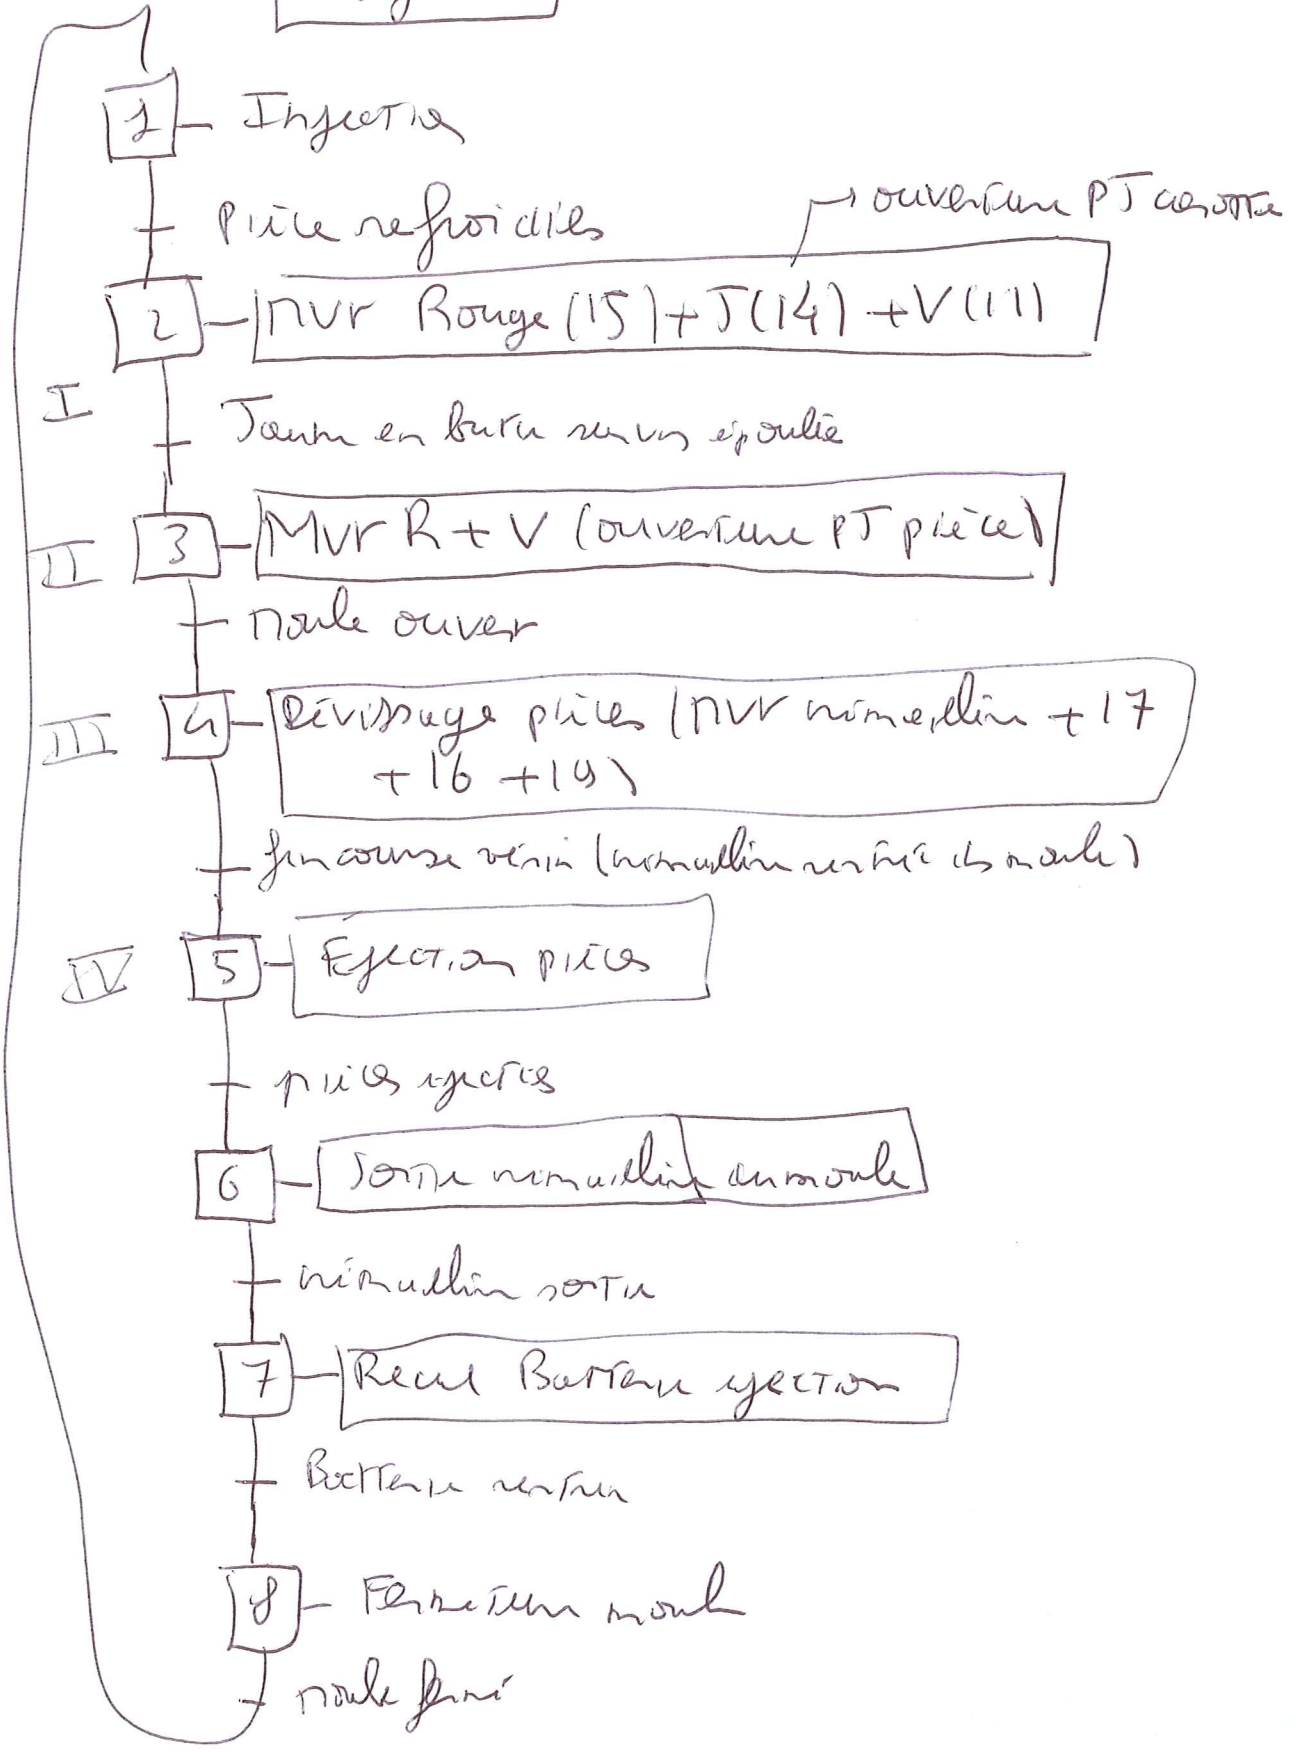 1 Injection
Pièce refroidies
→ ouverture PJ carotte
2 Mvr Rouge (15) + J(14) + V(11)
I
Jaune en butu sur vis épaulée
II
3 Mvr R + V (ouverture PJ pièce)
Moule ouver
III
4 Dévissage pièces (Mvr crémaillère + 17
+ 16 + 19)
fin course vérin (crémaillère rentré ds moule)
IV
5 Ejection pièces
pièces ejectés
6 Sortie crémaillère du moule
crémaillère sortie
7 Recul Batterie ejection
Batterie rentrée
8 Fermeture moule
Moule fermé